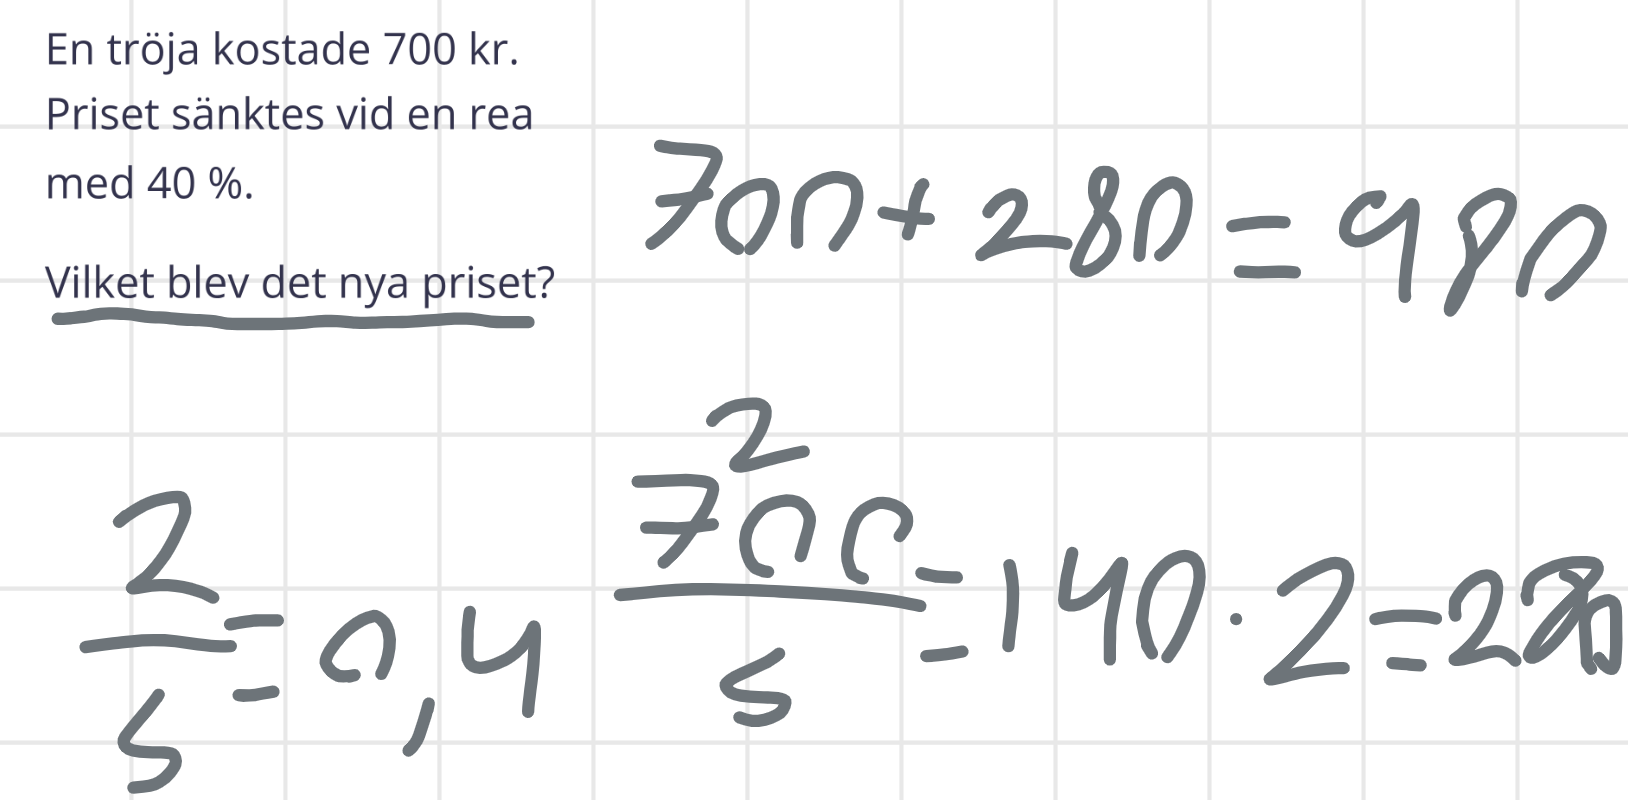 En tröja kostade 700 kr.
Priset sänktes vid en rea
med 40 %.
Vilket blev det nya priset?
700+280=980
2/5=0,4
2
700/5=140·2=280